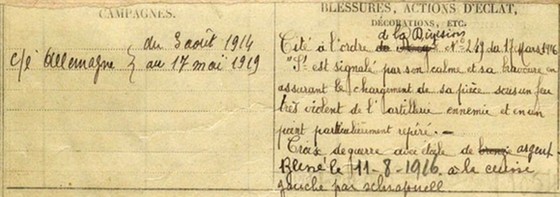 CAMPAGNES.
c/é Allemagne { du 3 août 1914
au 17 mai 1919
BLESSURES, ACTIONS D'ÉCLAT,
DÉCORATIONS, ETC.
de la Division
Cité à l'ordre N° 249 du 17 Mars 1916
"S'est signalé par son calme et sa bravoure en
assurant le chargement de sa pièce sous un feu
très violent de l'artillerie ennemie et en un
point particulièrement repéré. —
Croix de guerre avec étoile de bronze argent.
Blessé le 11-8-1916 à la cuisse
gauche par schrapnell